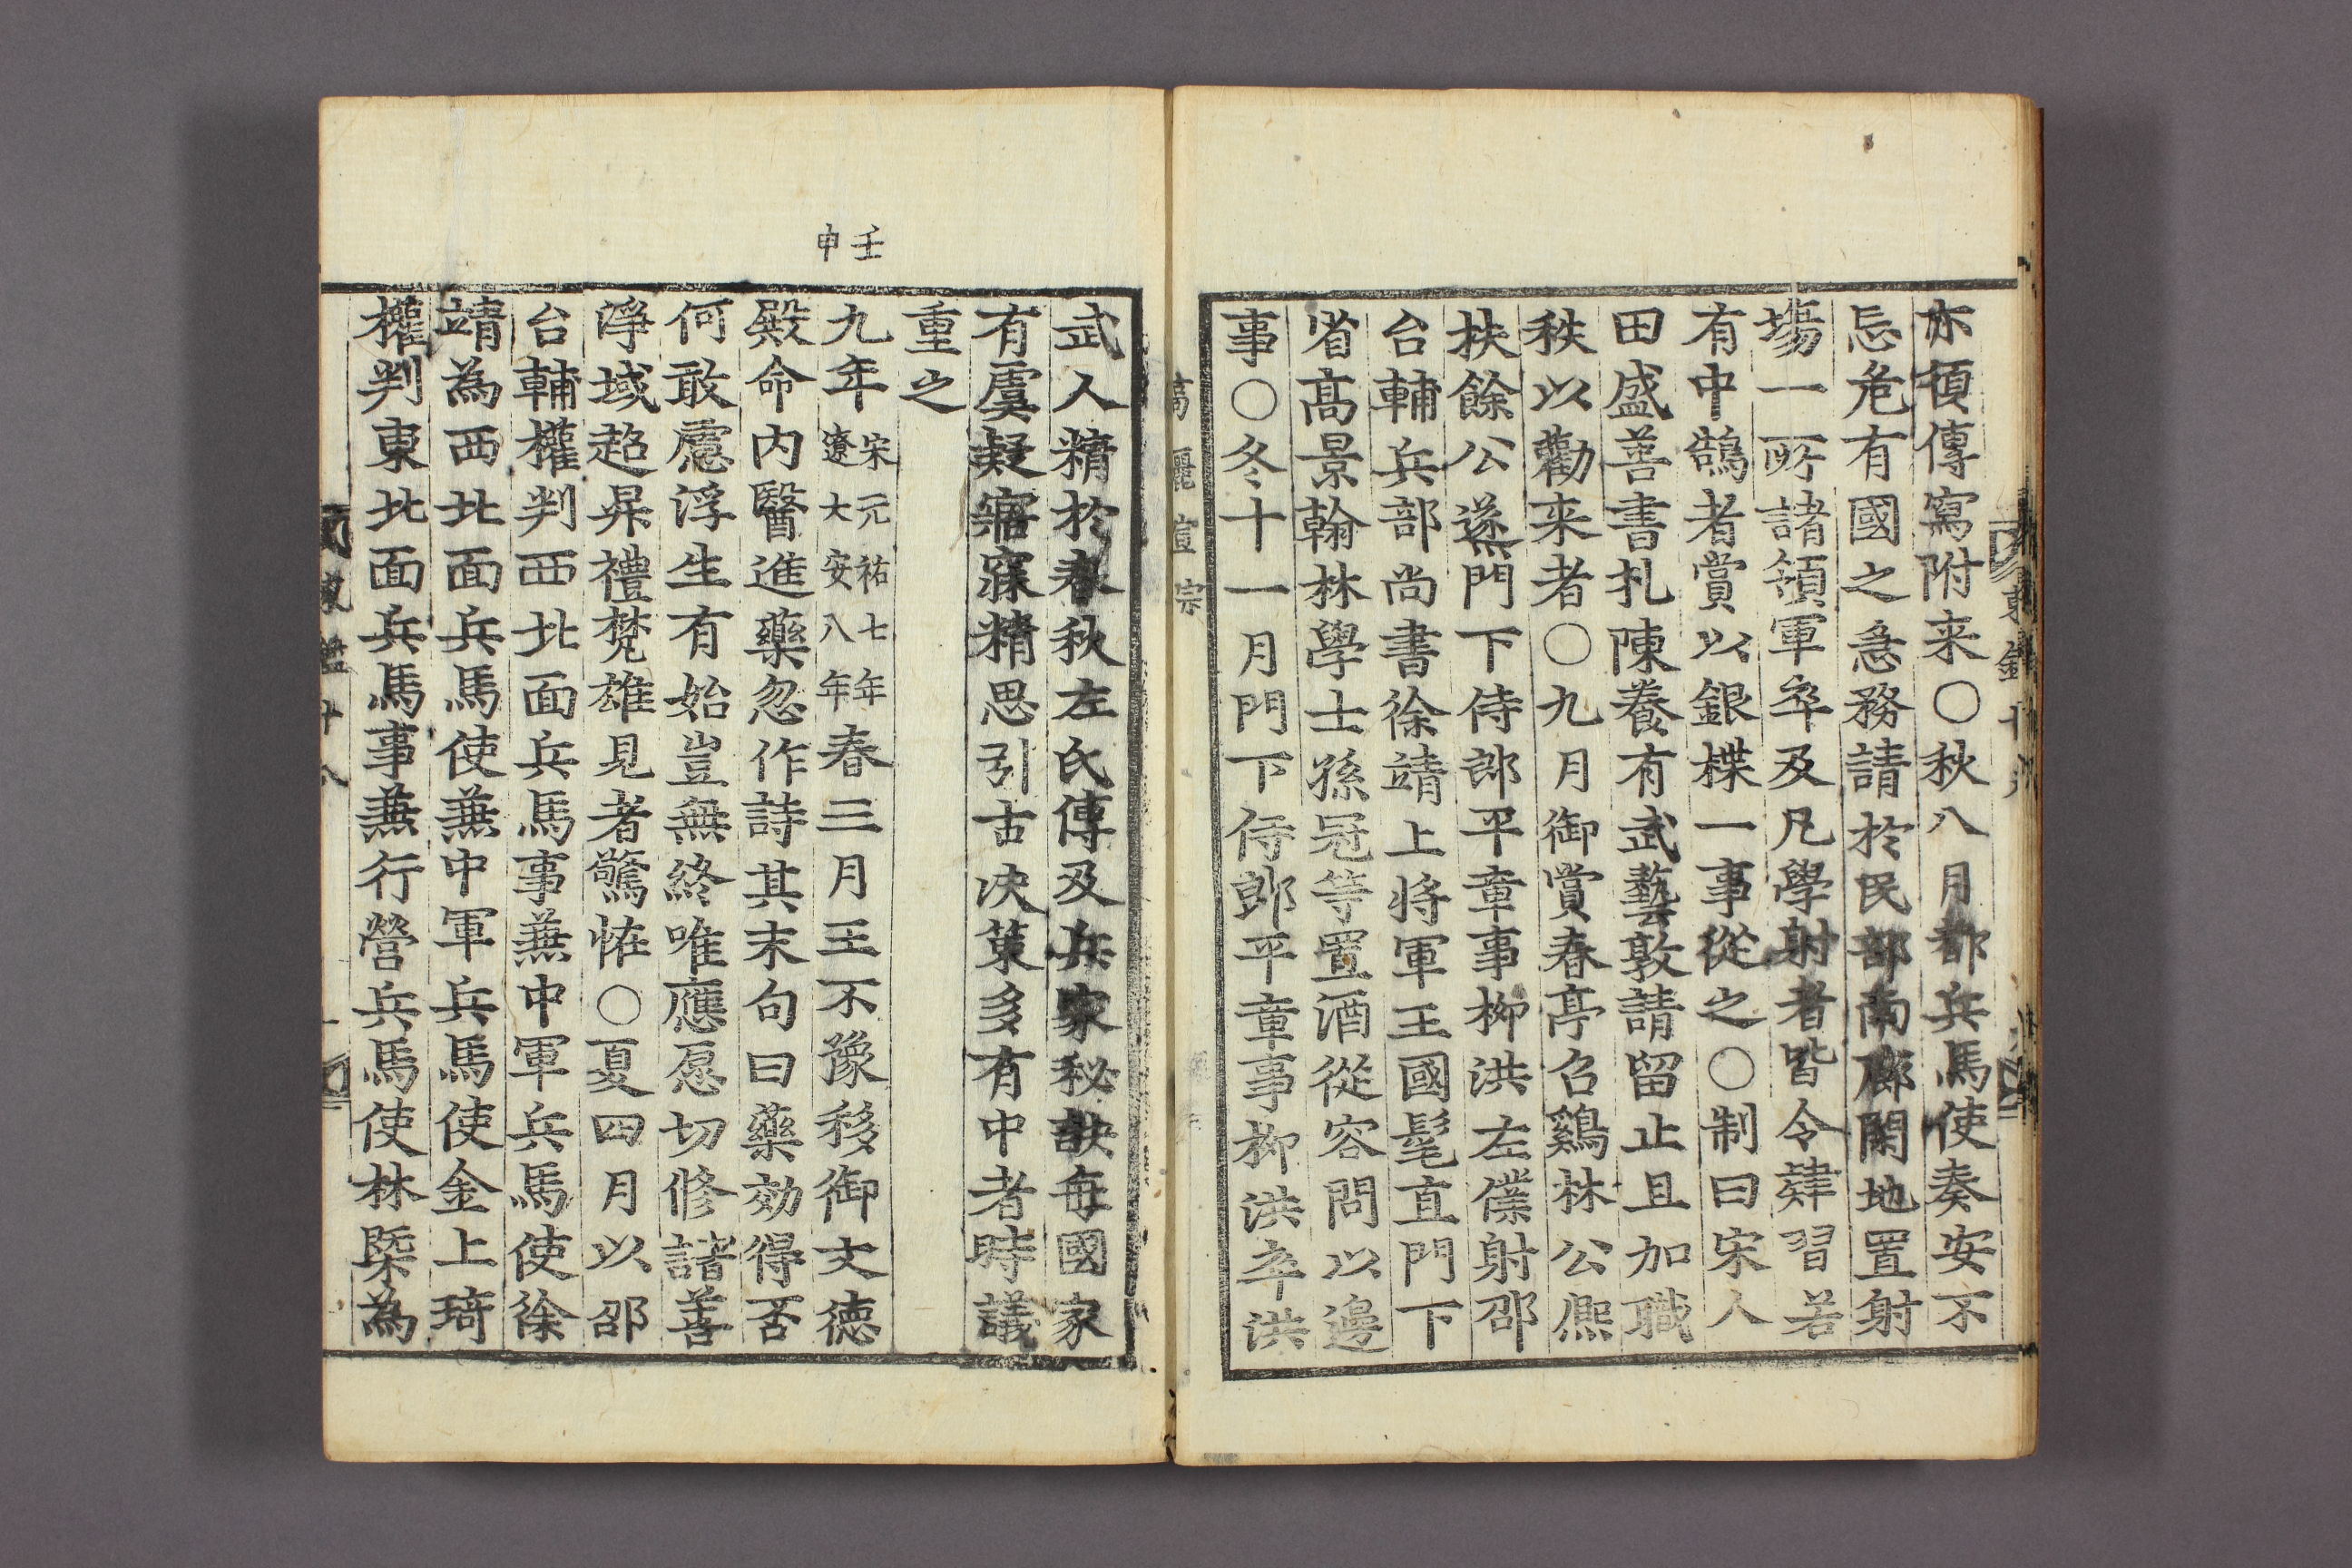 亦頓傳寫附来○秋八月都兵馬使奏安不
忘危有國之急務請於民部南廊閑地置射
場一所諸領軍卒及凡學射者皆令肄習若
有中鵠者賞以銀楪一事從之○制曰宋人
田盛善書札陳養有武藝敦請留止且加職
秩以勸来者○九月御賞春亭召鷄林公熈
扶餘公㸂門下侍郎平章事柳洪左僕射邵
台輔兵部尚書徐靖上將軍王國髦直門下
省高景翰林學士孫冠等置酒從容問以邊
事○冬十一月門下侍郎平章事柳洪卒洪
高麗宣宗
武人精於春秋左氏傳及兵家秘訣每國家
有虞凝寤寐精思引古决策多有中者時議
重之
壬申
九年宋元祐七年遼大安八年春三月王不豫移御文德
殿命内醫進藥忽作詩其末句曰藥効得否
何敢慮浮生有始豈無終唯應愿切修諸善
淨域超昇禮梵雄見者驚恠○夏四月以邵
台輔權判西北面兵馬事兼中軍兵馬使徐
靖為西北面兵馬使兼中軍兵馬使金上琦
權判東北面兵馬事兼行營兵馬使林槩為